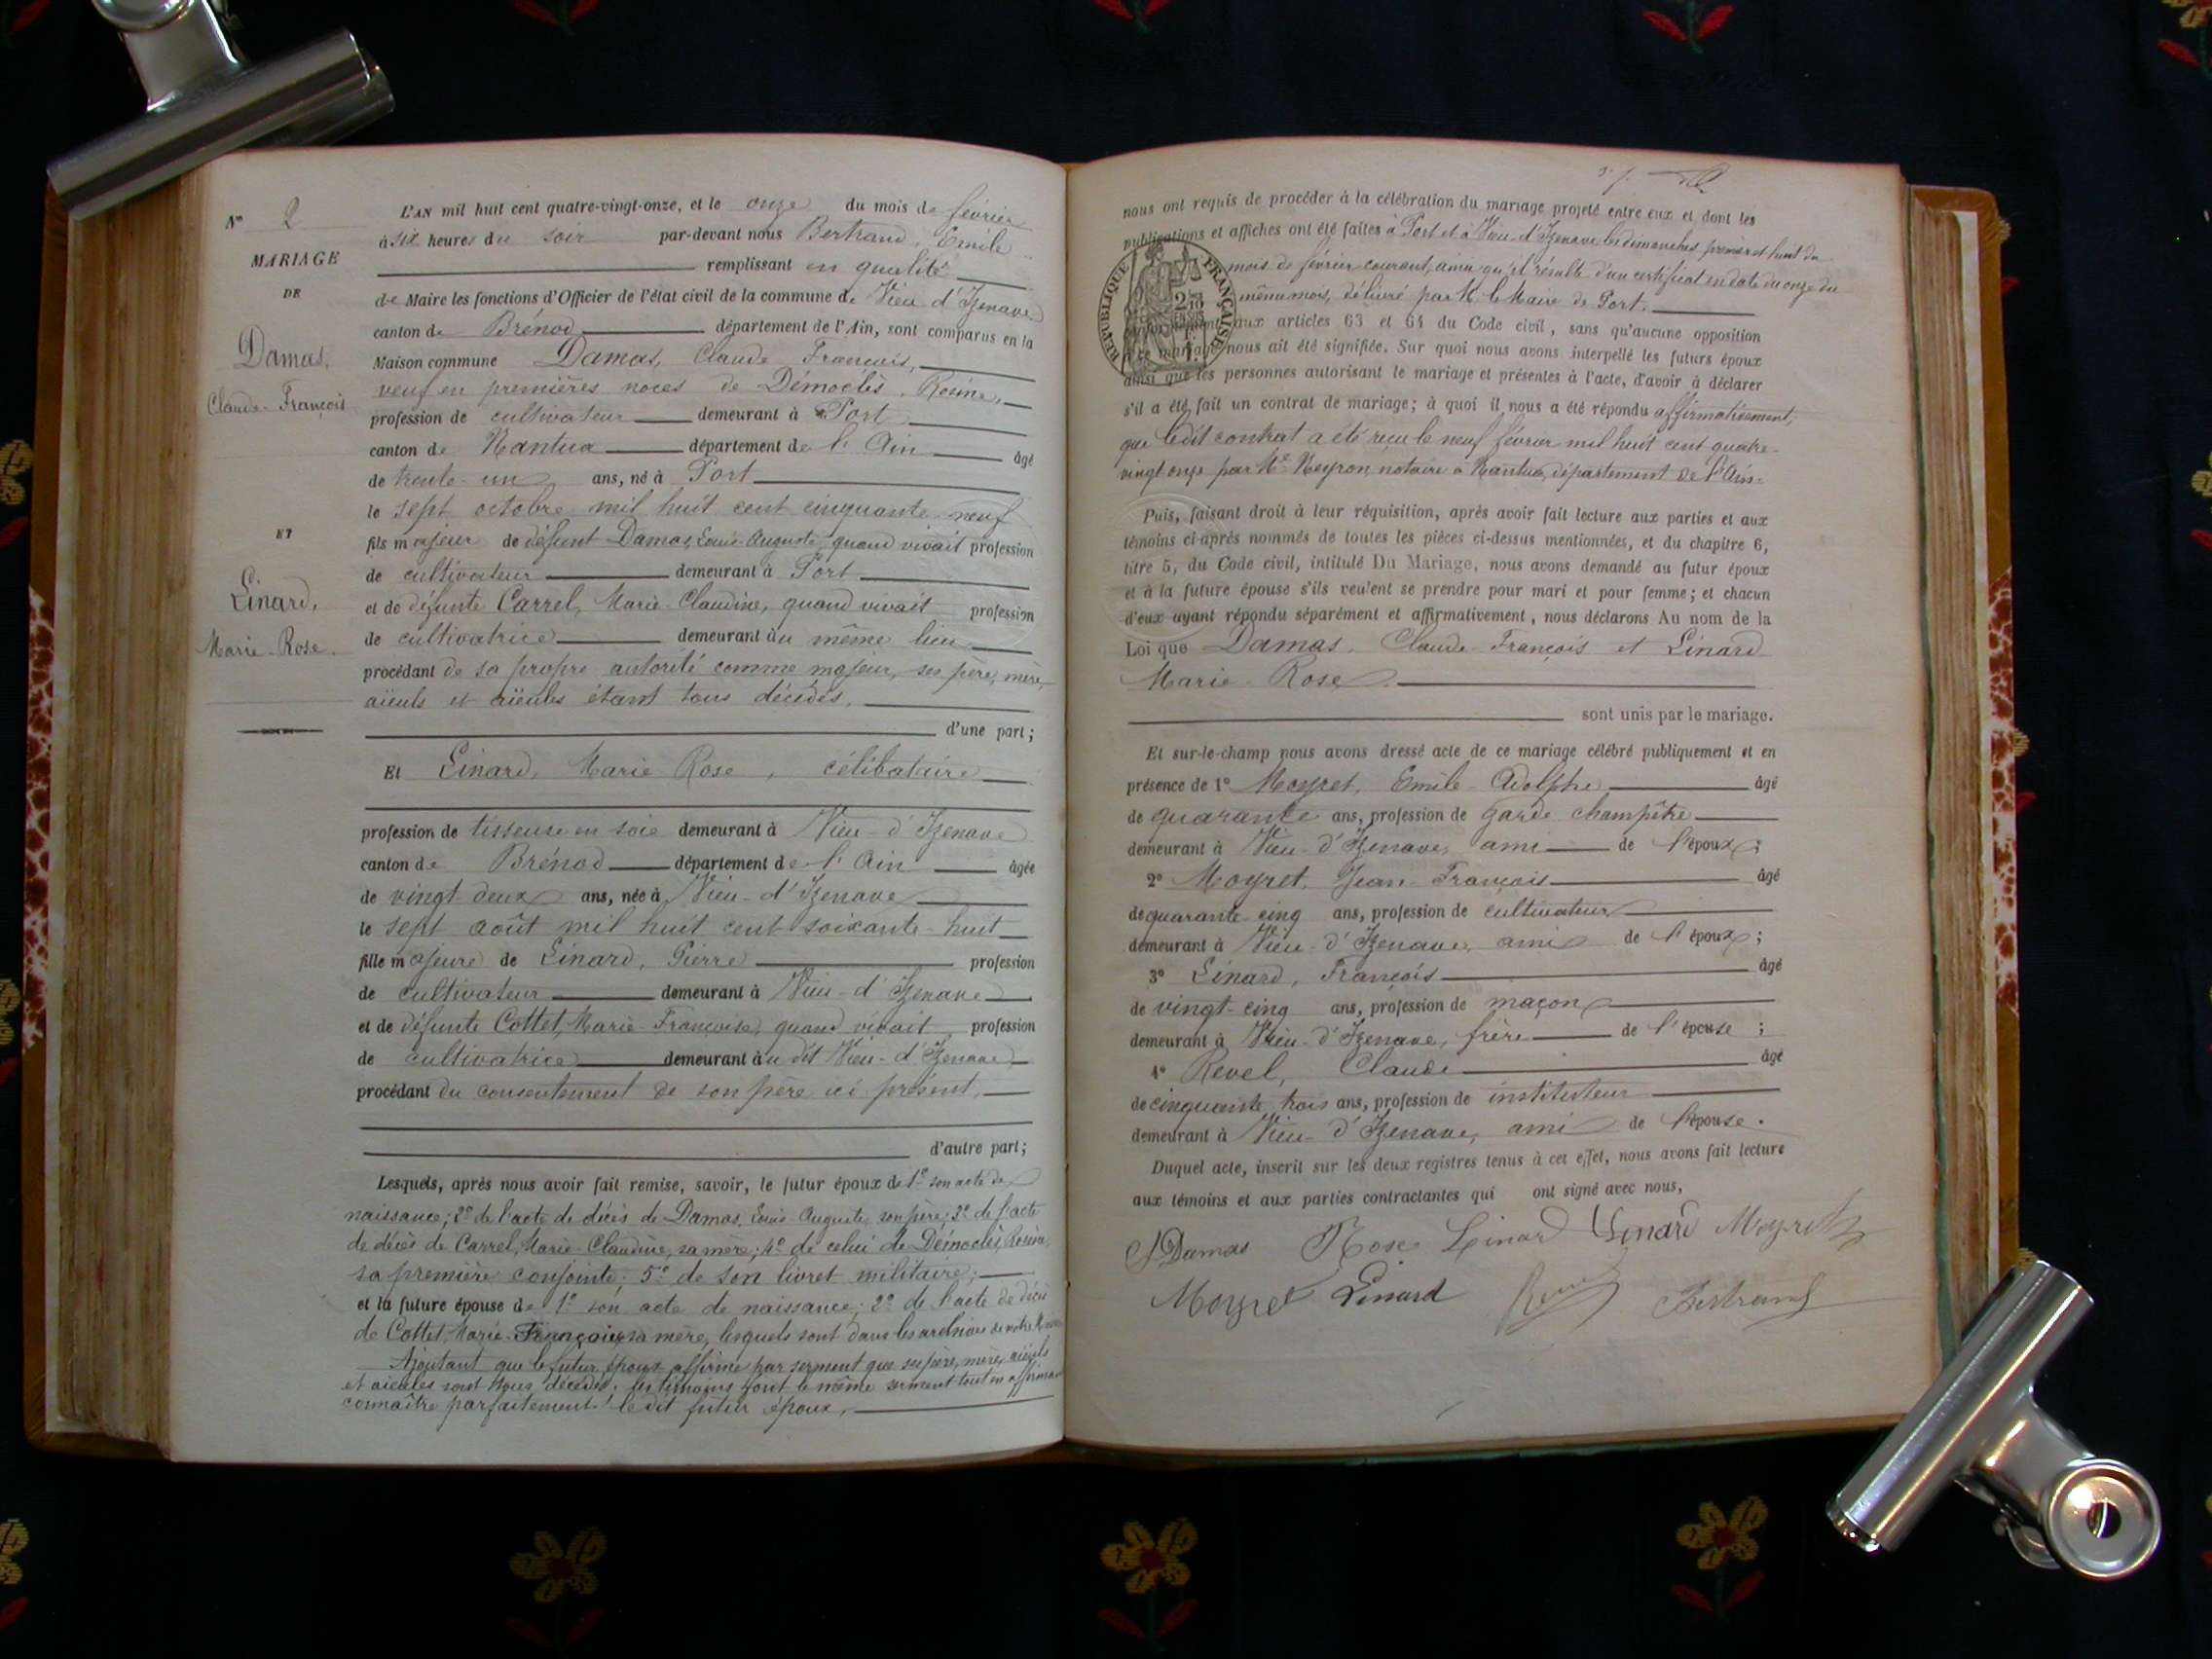 N° 2
MARIAGE
DE
Damas,
Claude-François
ET
Linard,
Marie-Rose.
L'AN mil huit cent quatre-vingt-onze, et le onze du mois de février
à six heures du soir par-devant nous Bertrand, Emile
remplissant en qualité
de Maire les fonctions d'Officier de l'état civil de la commune de Vieu-d'Izenave
canton de Brénod département de l'Ain, sont comparus en la
Maison commune Damas, Claude François,
veuf en premières noces de Démoclès, Rosine,
profession de cultivateur demeurant à Port
canton de Nantua département de l'Ain âgé
de trente-un ans, né à Port
le sept octobre mil huit cent cinquante-neuf
fils majeur de défunt Damas, Louis-Auguste, quand vivait profession
de cultivateur demeurant à Port
et de défunte Carrel, Marie-Claudine, quand vivait profession
de cultivatrice demeurant au même lieu
procédant de sa propre autorité comme majeur, ses père, mère,
aïeuls et aïeules étant tous décédés.
d'une part;
Et Linard, Marie-Rose, célibataire
profession de tisseuse en soie demeurant à Vieu-d'Izenave
canton de Brénod département de l'Ain âgée
de vingt-deux ans, née à Vieu-d'Izenave
le sept août mil huit cent soixante-huit
fille majeure de Linard, Pierre profession
de cultivateur demeurant à Vieu-d'Izenave
et de défunte Cottet, Marie-Françoise, quand vivait profession
de cultivatrice demeurant au dit Vieu-d'Izenave
procédant du consentement de son père ici présent,
d'autre part;
Lesquels, après nous avoir fait remise, savoir, le futur époux de 1° son acte de
naissance; 2° de l'acte de décès de Damas, Louis-Auguste, son père; 3° de l'acte
de décès de Carrel, Marie-Claudine, sa mère; 4° de celui de Démoclès, Rosine,
sa première conjointe; 5° de son livret militaire;
et la future épouse de 1° son acte de naissance; 2° de l'acte de décès
de Cottet, Marie-Françoise, sa mère, lesquels sont dans les archives de notre
Ajoutant que le futur époux affirme par serment que ses père, mère, aïeuls
et aïeules sont tous décédés; les témoins font le même serment tout en affirmant
connaître parfaitement ledit futur époux.
nous ont requis de procéder à la célébration du mariage projeté entre eux et dont les
publications et affiches ont été faites à Port et à Vieu-d'Izenave les dimanches premier et huit du
mois de février courant, ainsi qu'il résulte d'un certificat en date du onze du
même mois, délivré par M. le Maire de Port.
RÉPUBLIQUE FRANÇAISE
aux articles 63 et 64 du Code civil, sans qu'aucune opposition
à ce mariage nous ait été signifiée. Sur quoi nous avons interpellé les futurs époux
ainsi que les personnes autorisant le mariage et présentes à l'acte, d'avoir à déclarer
s'il a été fait un contrat de mariage; à quoi il nous a été répondu affirmativement,
que ledit contrat a été reçu le neuf février mil huit cent quatre-
vingt-onze par Me Neyron, notaire à Nantua, département de l'Ain.
Puis, faisant droit à leur réquisition, après avoir fait lecture aux parties et aux
témoins ci-après nommés de toutes les pièces ci-dessus mentionnées, et du chapitre 6,
titre 5, du Code civil, intitulé Du Mariage, nous avons demandé au futur époux
et à la future épouse s'ils veulent se prendre pour mari et pour femme; et chacun
d'eux ayant répondu séparément et affirmativement, nous déclarons Au nom de la
Loi que Damas, Claude-François et Linard
Marie-Rose
sont unis par le mariage.
Et sur-le-champ nous avons dressé acte de ce mariage célébré publiquement et en
présence de 1° Moyret, Emile-Adolphe âgé
de quarante ans, profession de garde champêtre
demeurant à Vieu-d'Izenave, ami de l'époux;
2° Moyret, Jean-François âgé
de quarante-cinq ans, profession de cultivateur
demeurant à Vieu-d'Izenave, ami de l'époux;
3° Linard, François âgé
de vingt-cinq ans, profession de maçon
demeurant à Vieu-d'Izenave, frère de l'épouse;
4° Revel, Claude âgé
de cinquante-trois ans, profession de instituteur
demeurant à Vieu-d'Izenave, ami de l'épouse.
Duquel acte, inscrit sur les deux registres tenus à cet effet, nous avons fait lecture
aux témoins et aux parties contractantes qui ont signé avec nous,
Damas Rose Linard Linard Moyret
Moyret Linard Revel Bertrand